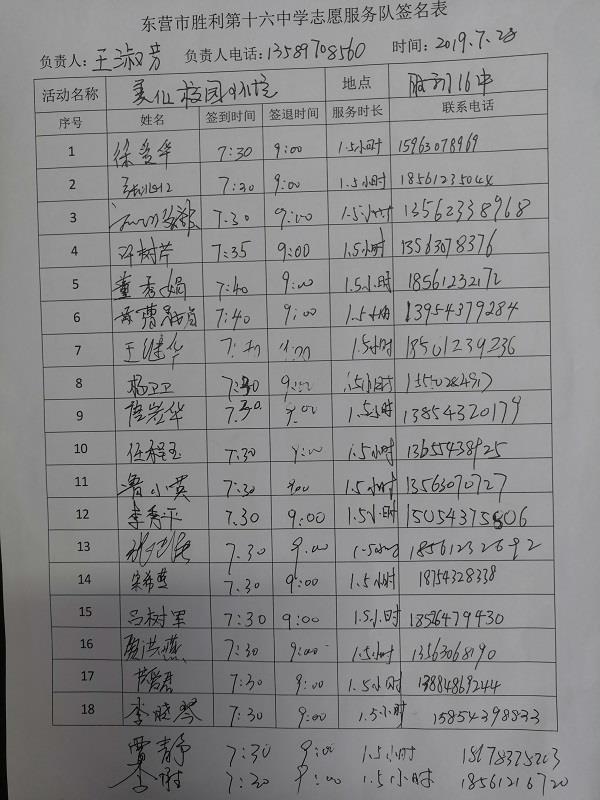 东营市胜利第十六中学志愿服务队签名表
负责人：王淑芳 负责人电话：13589708560 时间：2019.7.28
活动名称 美化校园环境 地点 胜利16中
序号 姓名 签到时间 签退时间 服务时长 联系电话
1 徐爱华 7:30 9:00 1.5小时 15963078969
2 7:30 9:00 1.5小时
3 7:30 9:00 1.5小时 13562338968
4 许树芹 7:35 9:00 1.5小时 13563078376
5 董秀娟 7:40 9:00 1.5小时 18561232172
6 7:40 9:00 1.5小时 13954379284
7 王继华 9:00 1.5小时 18501239236
8 杨卫卫 7:30 9:00 1.5小时
9 7.30 9:00 1.5小时 13854320179
10 7:30 9:00 1.5小时 13655438925
11 鲁小英 7:30 9:00 1.5小时 13563070727
12 李秀平 7.30 9:00 1.5小时 15054375806
13 7.30 9:00 18561232692
14 宋希燕 7.30 9:00 1.5小时 18754328338
15 吕树军 7:30 9:00 1.5小时 18526479430
16 贾洪燕 7:30 9:00 1.5小时 13563068190
17 7:30 9:00 1.5小时 13884869244
18 李晓琴 7:30 9:00 1.5小时 15854398833
贾静 7:30 9:00 1.5小时
7:30 9:00 1.5小时 18561216720